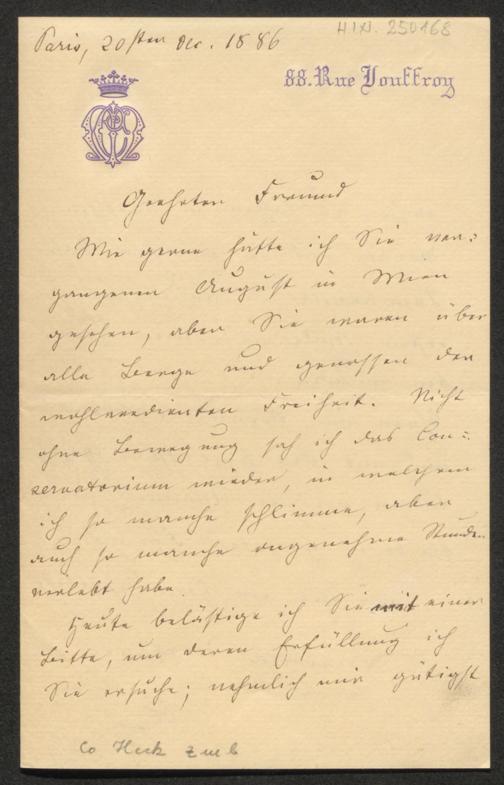 Paris, 20sten Dec. 1886
H.I.N. 250168
88. Rue Jouffroy
Geehrter Freund
Wie gerne hätte ich Sie ver=
gangenen August in Wien
gesehen, aber Sie waren über
alle Berge und genossen der
wohlverdienten Freiheit. Nicht
ohne Bewegung sah ich das Con=
servatorium wieder, in welchem
ich so manche schlimme, aber
auch so manche angenehme Stunden
verlebt habe.
Heute belästige ich Sie mit einer
Bitte, um deren Erfüllung ich
Sie ersuche; nehmlich mir gütigst